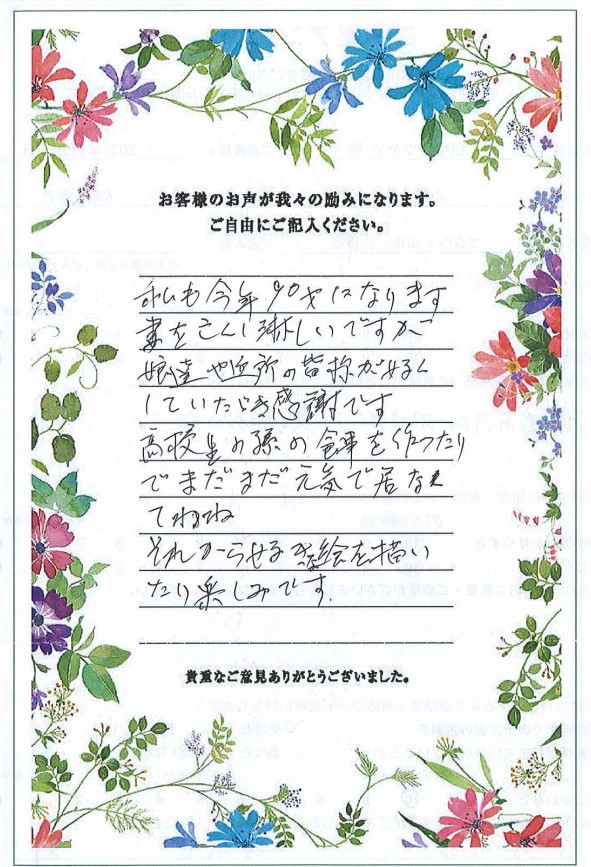 お客様のお声が我々の励みになります。
ご自由にご記入ください。
私も今年90才になります
妻を亡くし淋しいですが
娘達や近所の皆様が好く
していただき感謝です
高校生の孫の食事を作ったり
でまだまだ元気で居なく
てわね
それからせる 絵を描い
たり楽しみです.
貴重なご意見ありがとうございました。